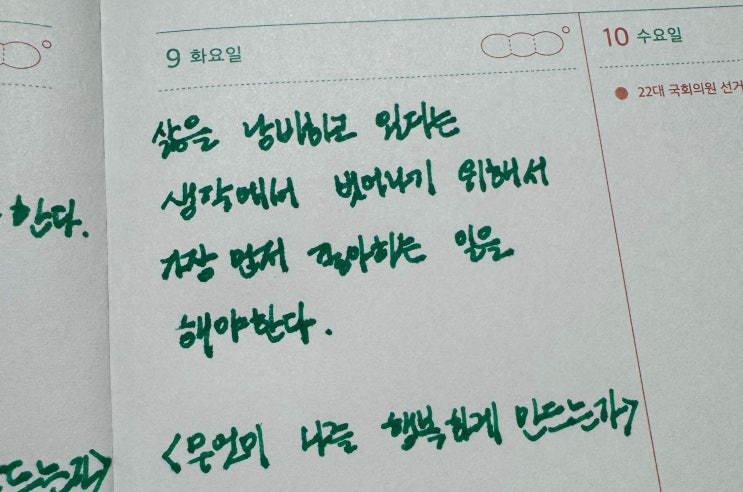 9 화요일
10 수요일
22대 국회의원 선거
삶을 낭비하고 있다는
생각에서 벗어나기 위해서
한다.
가장 먼저 좋아하는 일을
해야한다.
<무엇이 나를 행복하게 만드는가>
드는가>